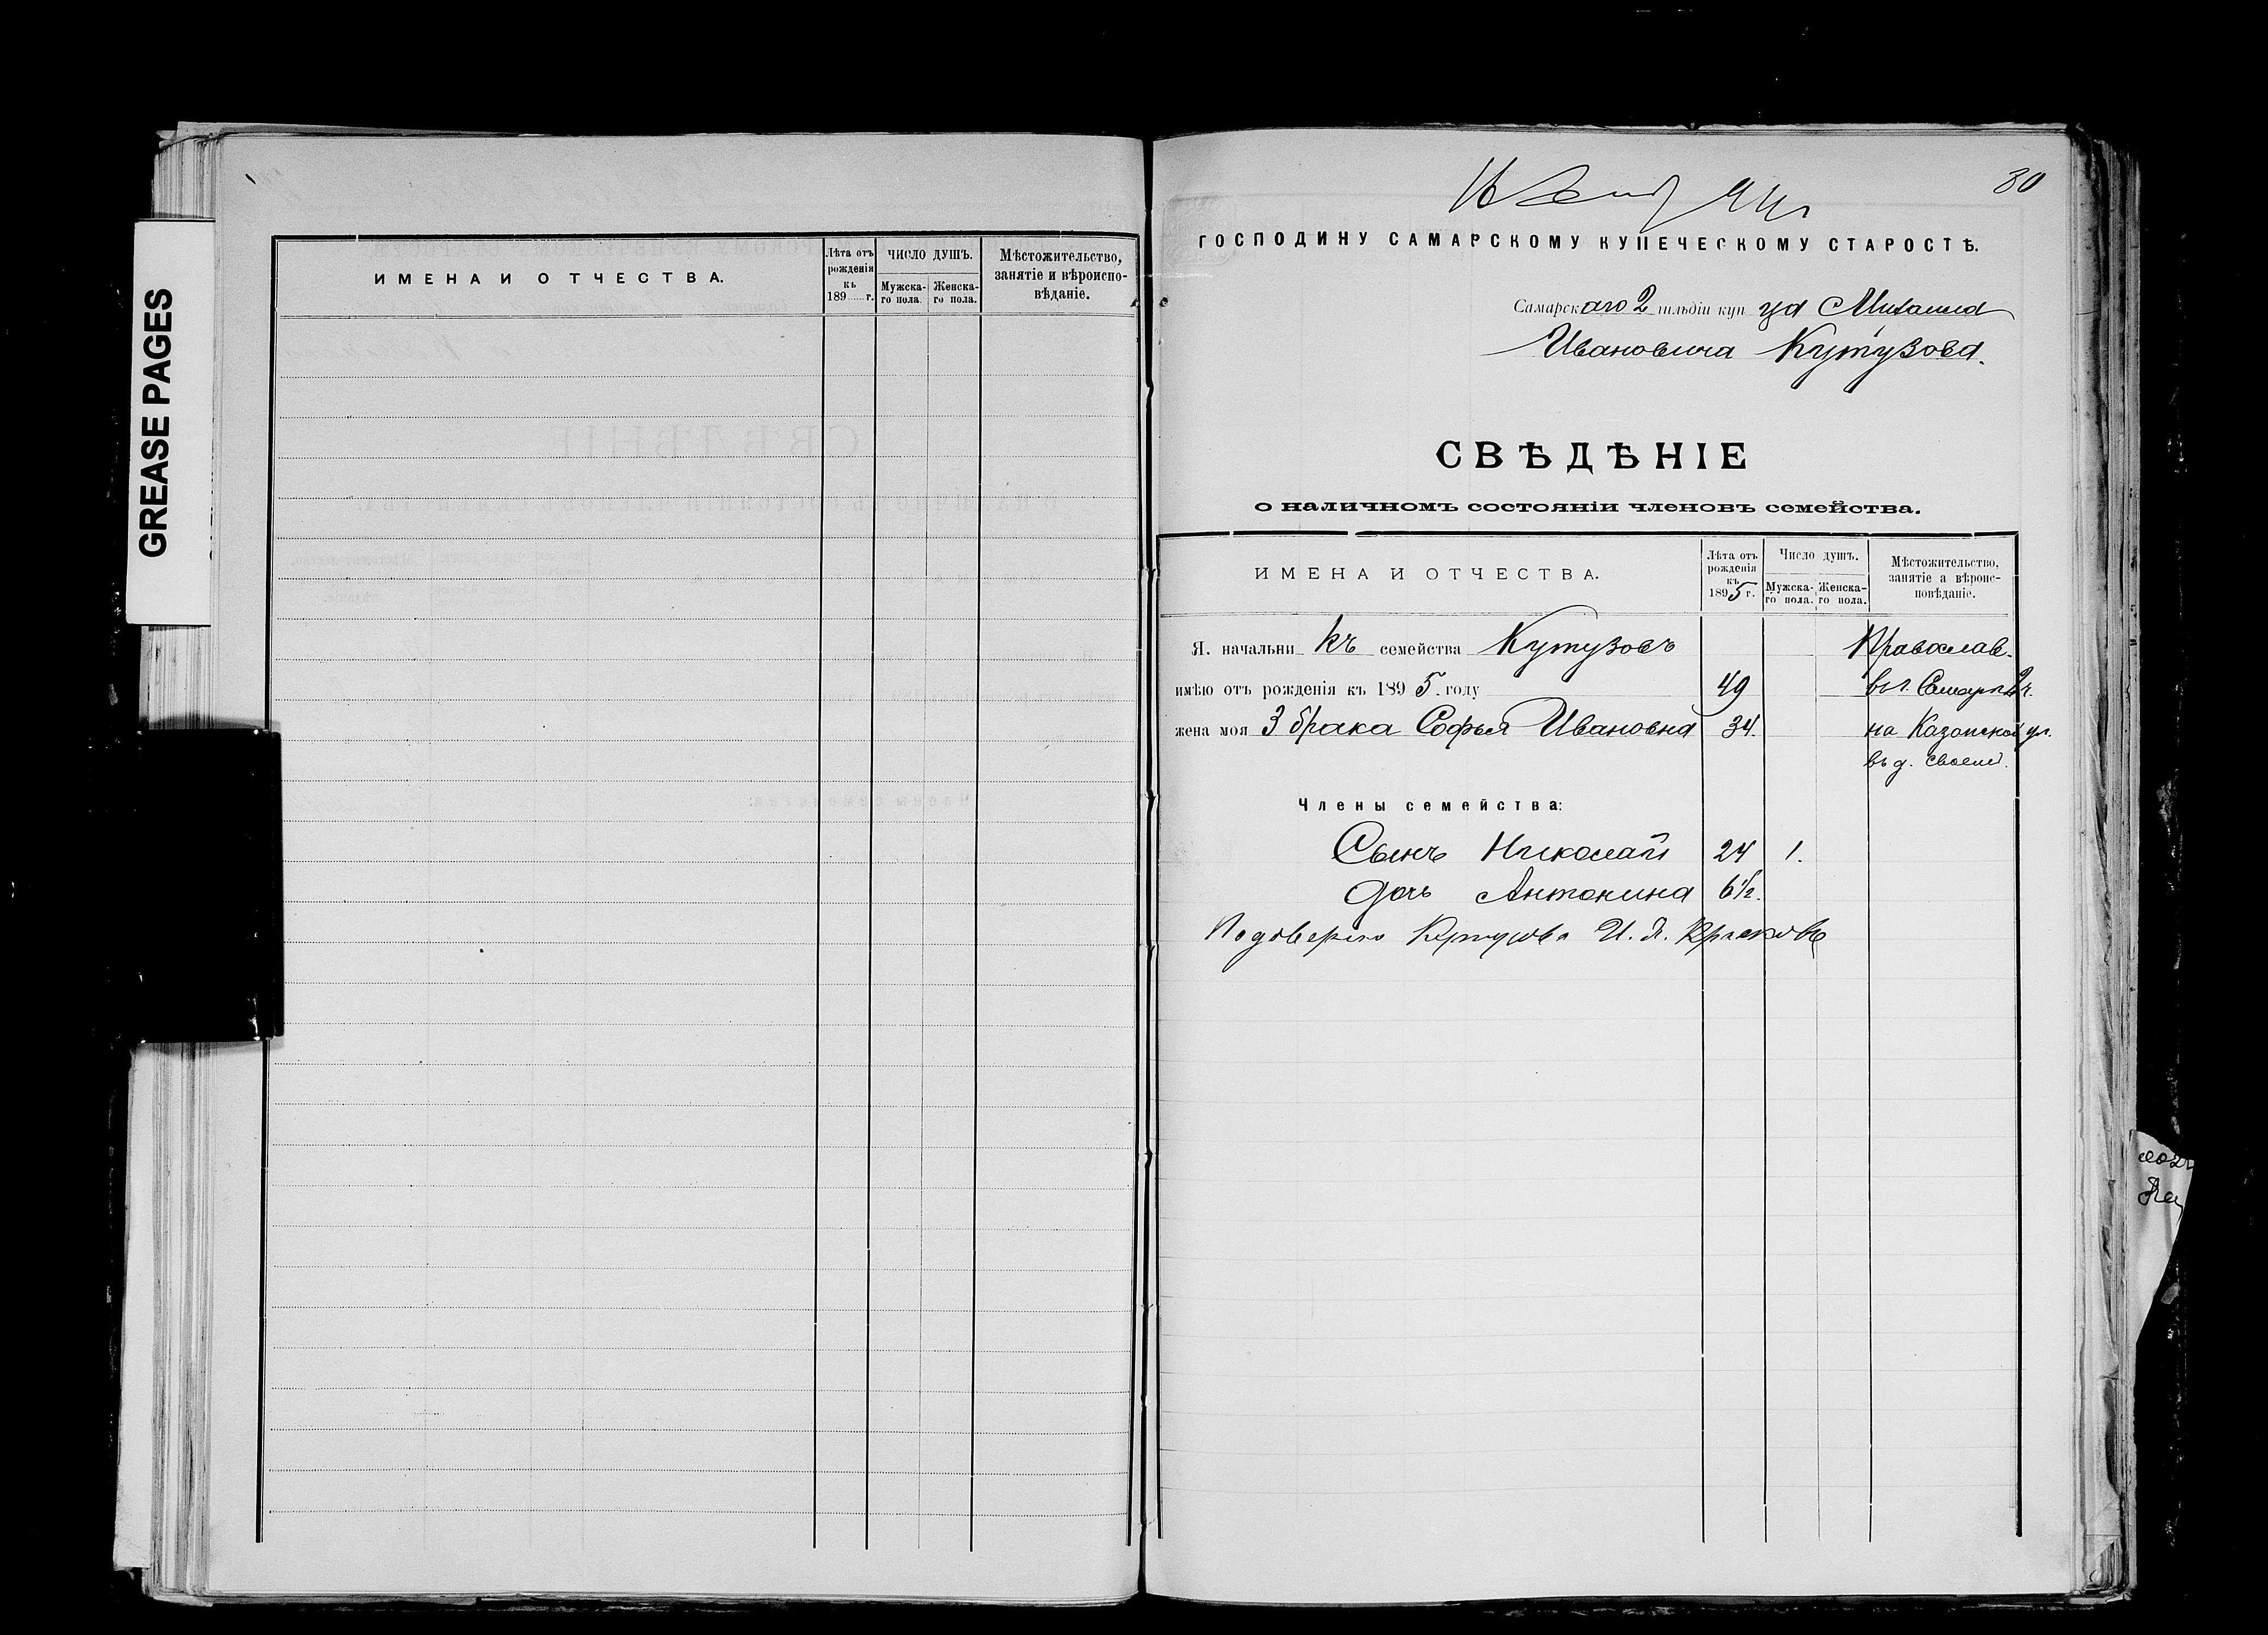 GREASE PAGES
ИМЕНА И ОТЧЕСТВА.
Лѣта отъ рожденія къ 189 г.
ЧИСЛО ДУШЪ.
Мужска-го пола.
Женска-го пола.
Мѣстожительство, занятіе и вѣроиспо-вѣданіе.
80
ГОСПОДИНУ САМАРСКОМУ КУПЕЧЕСКОМУ СТАРОСТѢ.
Самарскаго 2 гильдіи купца Михаила
Ивановича Кутузова.
СВѢДѢНІЕ
о наличномъ состояніи членовъ семейства.
ИМЕНА И ОТЧЕСТВА.
Лѣта отъ рожденія къ 1895 г.
Число душъ.
Мужска-го пола.
Женска-го пола.
Мѣстожительство, занятіе а вѣроис-повѣданіе.
Я. начальникъ семейства Кутузовъ Православ.
имѣю отъ рожденія къ 1895. году 49 въ г. Самарѣ 2 ч.
жена моя 3 брака Софья Ивановна 34. на Казанской ул.
въ д. своемъ.
Члены семейства:
Сынъ Николай 24 1.
дочь Антонина 6½.
По доверію Кутузова И. Я.